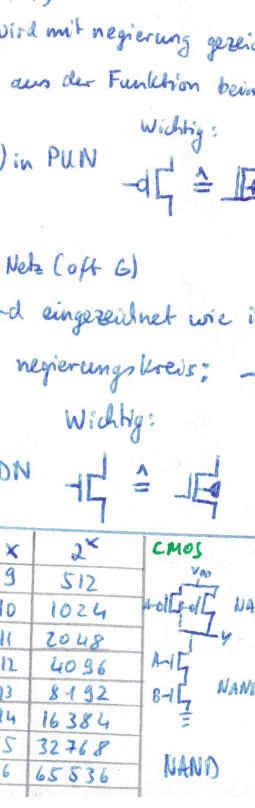 wird mit negierung gezeic
aus der Funktion beim
Wichtig:
) in PUN
≙
Netz (oft G)
d eingezeichnet wie i
negierungskreis:
Wichtig:
DN
≙
x 2^x
9 512
10 1024
11 2048
12 4096
13 8192
14 16384
15 32768
16 65536
CMOS
VDD
A
B
NA
Y
A
B
NAND
NAND